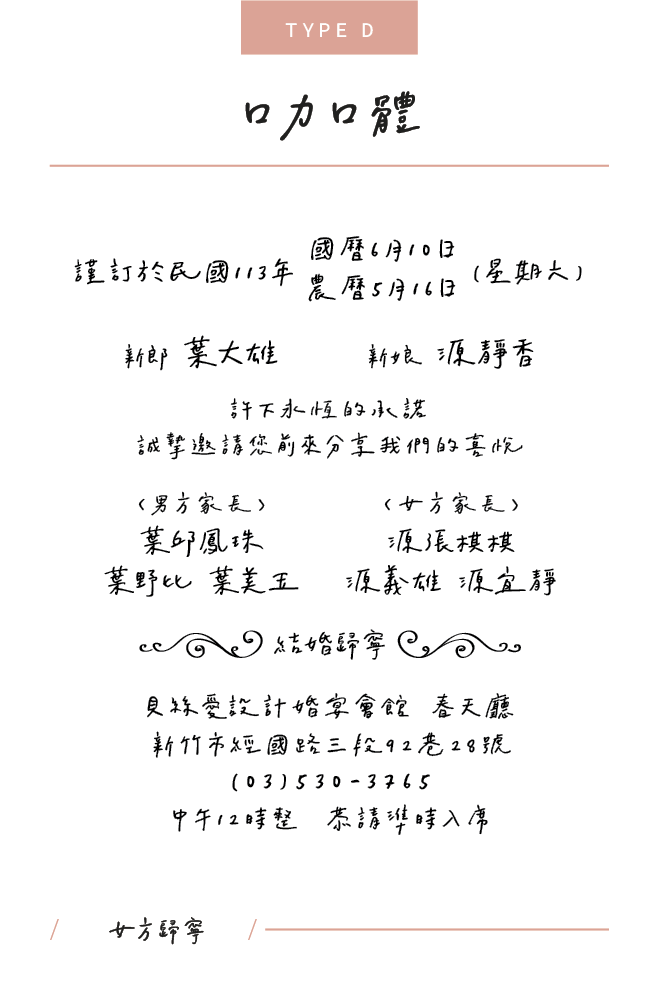 TYPE D
口力口體
謹訂於民國113年 國曆6月10日 (星期六)
農曆5月16日
新郎 葉大雄 新娘 源靜香
許下永恆的承諾
誠摯邀請您前來分享我們的喜悅
〈男方家長〉 〈女方家長〉
葉邱鳳珠 源張棋棋
葉野比 葉美玉 源義雄 源宜靜
結婚歸寧
貝絲愛設計婚宴會館 春天廳
新竹市經國路三段92巷28號
(03)530-3765
中午12時整 恭請準時入席
/ 女方歸寧 /